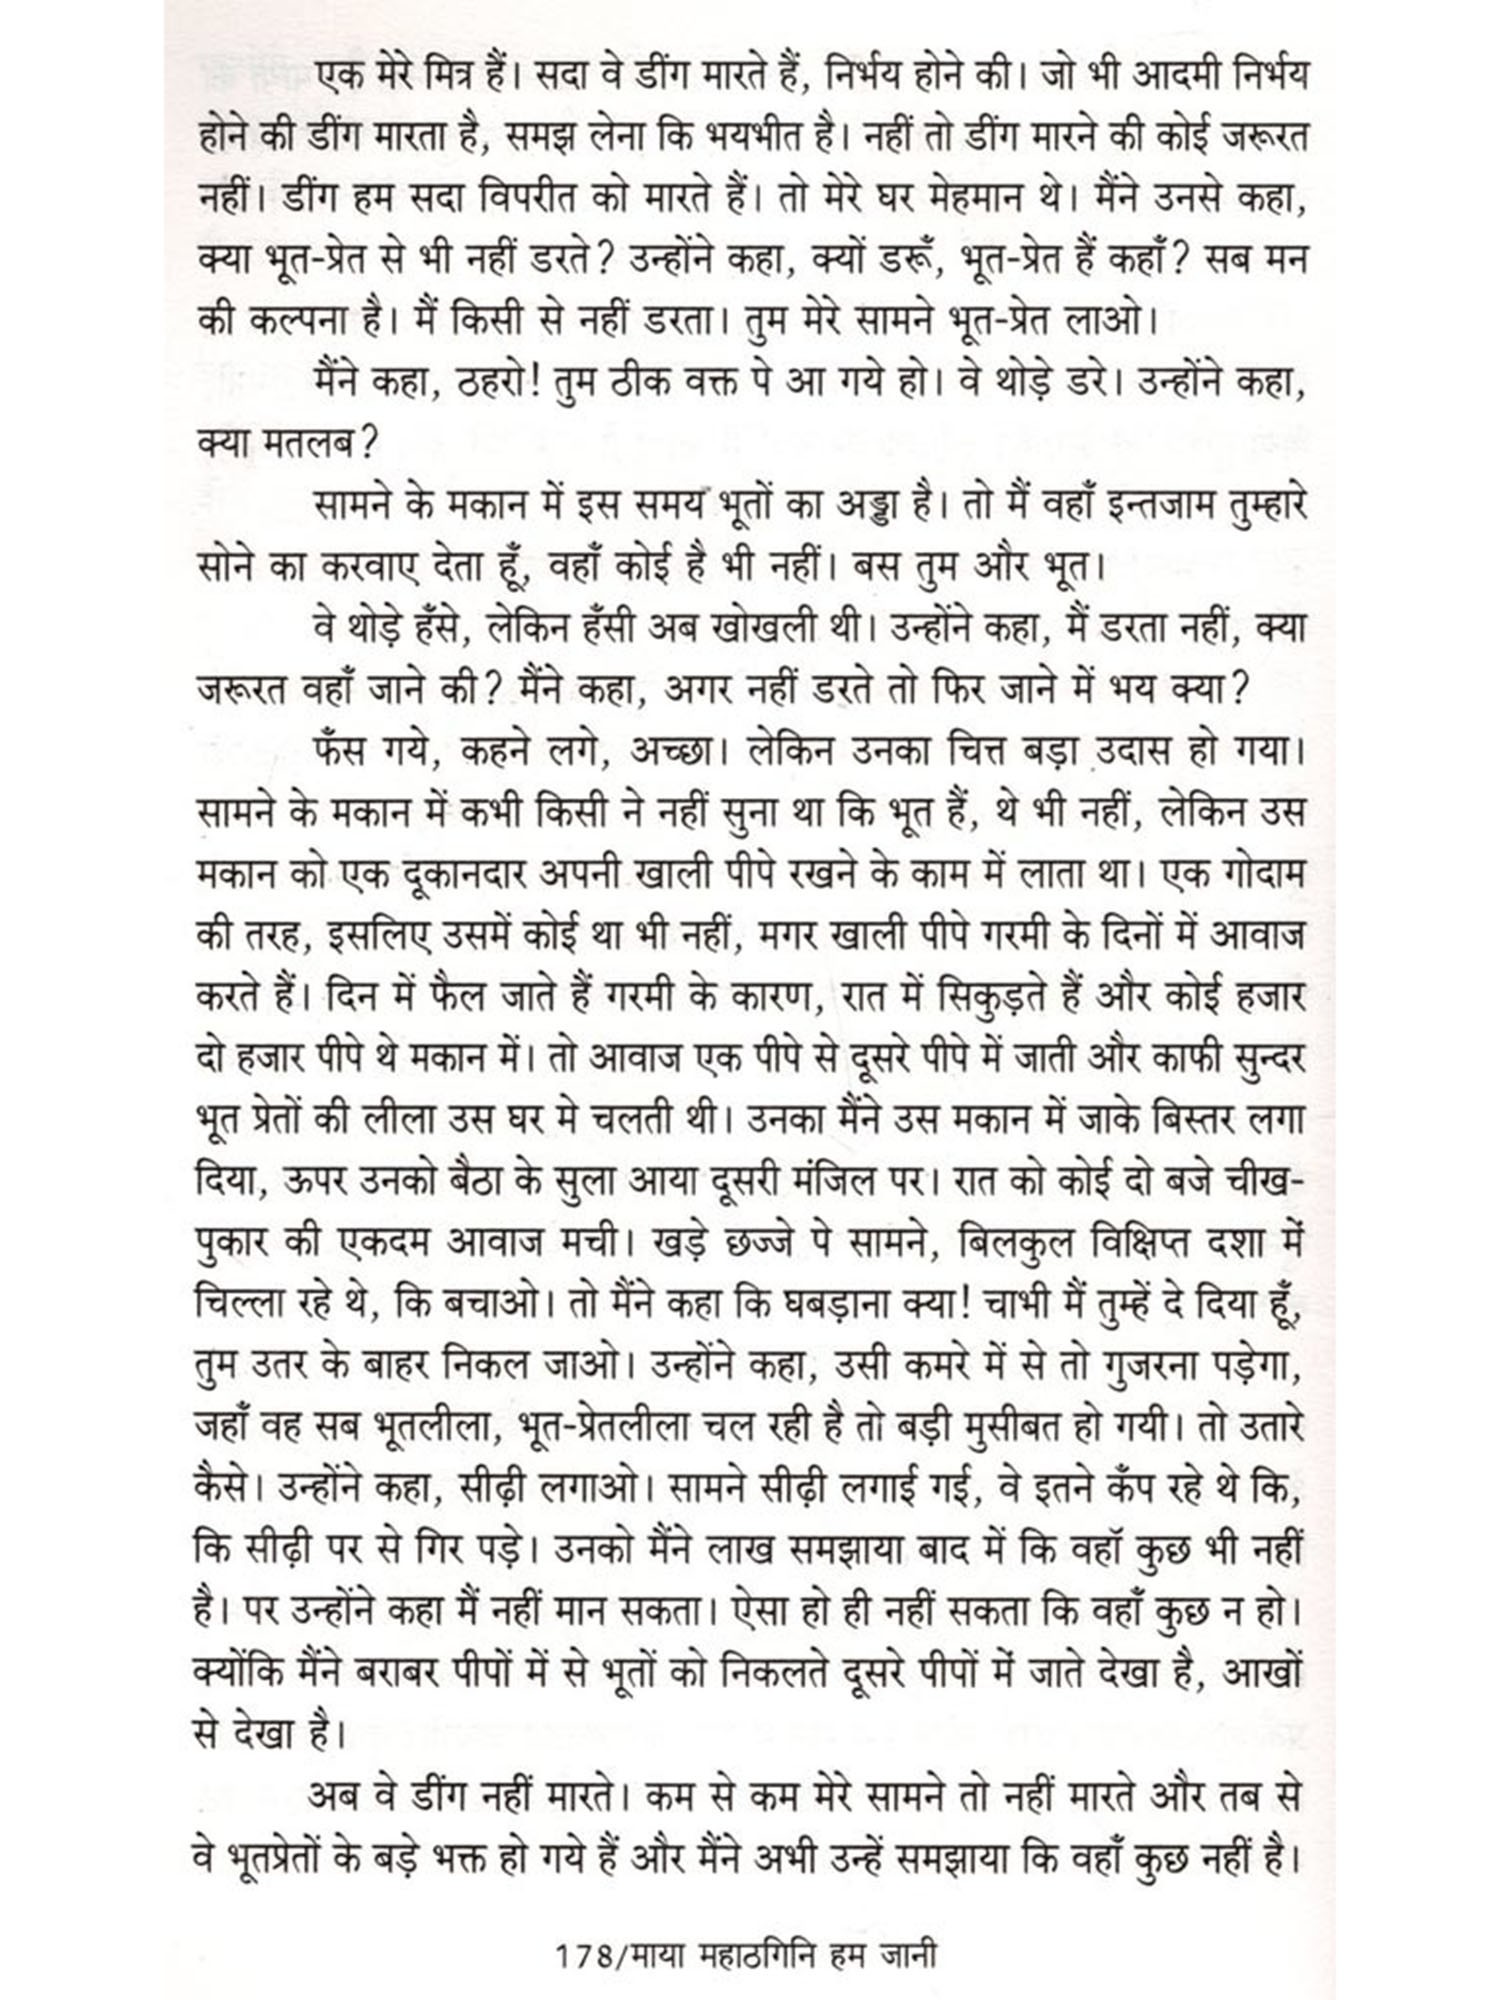 एक मेरे मित्र हैं। सदा वे डींग मारते हैं, निर्भय होने की। जो भी आदमी निर्भय
होने की डींग मारता है, समझ लेना कि भयभीत है। नहीं तो डींग मारने की कोई जरूरत
नहीं। डींग हम सदा विपरीत को मारते हैं। तो मेरे घर मेहमान थे। मैंने उनसे कहा,
क्या भूत-प्रेत से भी नहीं डरते? उन्होंने कहा, क्यों डरूँ, भूत-प्रेत हैं कहाँ? सब मन
की कल्पना है। मैं किसी से नहीं डरता। तुम मेरे सामने भूत-प्रेत लाओ।
मैंने कहा, ठहरो! तुम ठीक वक्त पे आ गये हो। वे थोड़े डरे। उन्होंने कहा,
क्या मतलब?
सामने के मकान में इस समय भूतों का अड्डा है। तो मैं वहाँ इन्तजाम तुम्हारे
सोने का करवाए देता हूँ, वहाँ कोई है भी नहीं। बस तुम और भूत।
वे थोड़े हँसे, लेकिन हँसी अब खोखली थी। उन्होंने कहा, मैं डरता नहीं, क्या
जरूरत वहाँ जाने की? मैंने कहा, अगर नहीं डरते तो फिर जाने में भय क्या?
फँस गये, कहने लगे, अच्छा। लेकिन उनका चित्त बड़ा उदास हो गया।
सामने के मकान में कभी किसी ने नहीं सुना था कि भूत हैं, थे भी नहीं, लेकिन उस
मकान को एक दूकानदार अपनी खाली पीपे रखने के काम में लाता था। एक गोदाम
की तरह, इसलिए उसमें कोई था भी नहीं, मगर खाली पीपे गरमी के दिनों में आवाज
करते हैं। दिन में फैल जाते हैं गरमी के कारण, रात में सिकुड़ते हैं और कोई हजार
दो हजार पीपे थे मकान में। तो आवाज एक पीपे से दूसरे पीपे में जाती और काफी सुन्दर
भूत प्रेतों की लीला उस घर मे चलती थी। उनका मैंने उस मकान में जाके बिस्तर लगा
दिया, ऊपर उनको बैठा के सुला आया दूसरी मंजिल पर। रात को कोई दो बजे चीख-
पुकार की एकदम आवाज मची। खड़े छज्जे पे सामने, बिलकुल विक्षिप्त दशा में
चिल्ला रहे थे, कि बचाओ। तो मैंने कहा कि घबड़ाना क्या! चाभी मैं तुम्हें दे दिया हूँ,
तुम उतर के बाहर निकल जाओ। उन्होंने कहा, उसी कमरे में से तो गुजरना पड़ेगा,
जहाँ वह सब भूतलीला, भूत-प्रेतलीला चल रही है तो बड़ी मुसीबत हो गयी। तो उतारे
कैसे। उन्होंने कहा, सीढ़ी लगाओ। सामने सीढ़ी लगाई गई, वे इतने कँप रहे थे कि,
कि सीढ़ी पर से गिर पड़े। उनको मैंने लाख समझाया बाद में कि वहॉ कुछ भी नहीं
है। पर उन्होंने कहा मैं नहीं मान सकता। ऐसा हो ही नहीं सकता कि वहाँ कुछ न हो।
क्योंकि मैंने बराबर पीपों में से भूतों को निकलते दूसरे पीपों में जाते देखा है, आखों
से देखा है।
अब वे डींग नहीं मारते। कम से कम मेरे सामने तो नहीं मारते और तब से
वे भूतप्रेतों के बड़े भक्त हो गये हैं और मैंने अभी उन्हें समझाया कि वहाँ कुछ नहीं है।
178/माया महाठगिनि हम जानी